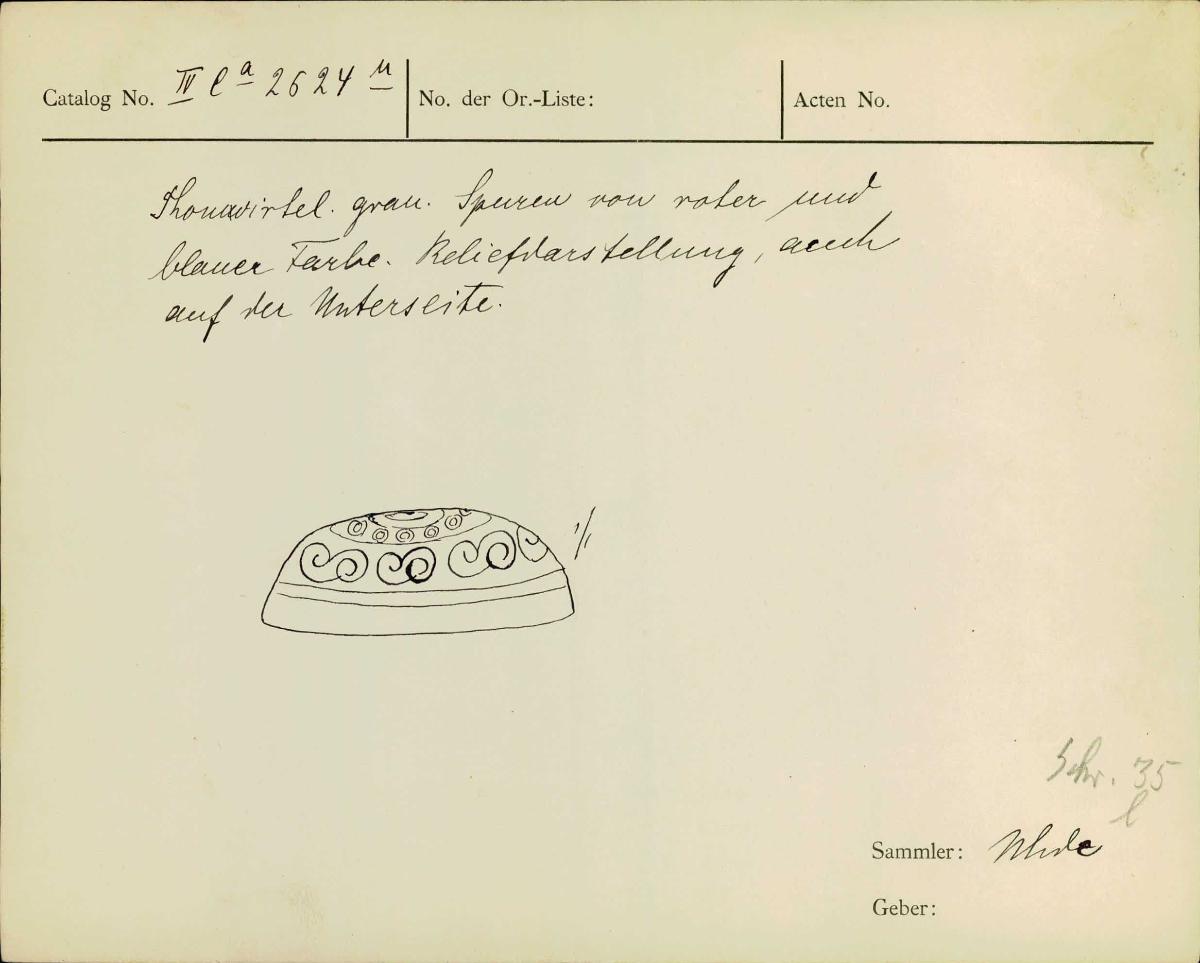 Catalog No. IV Ca 2624 u No. der Or.-Liste: Acten No.
Thonwirtel. grau. Spuren von roter und
blauer Farbe. Reliefdarstellung, auch
auf der Unterseite.
1/1
Schr. 35
l
Sammler: Uhde
Geber: